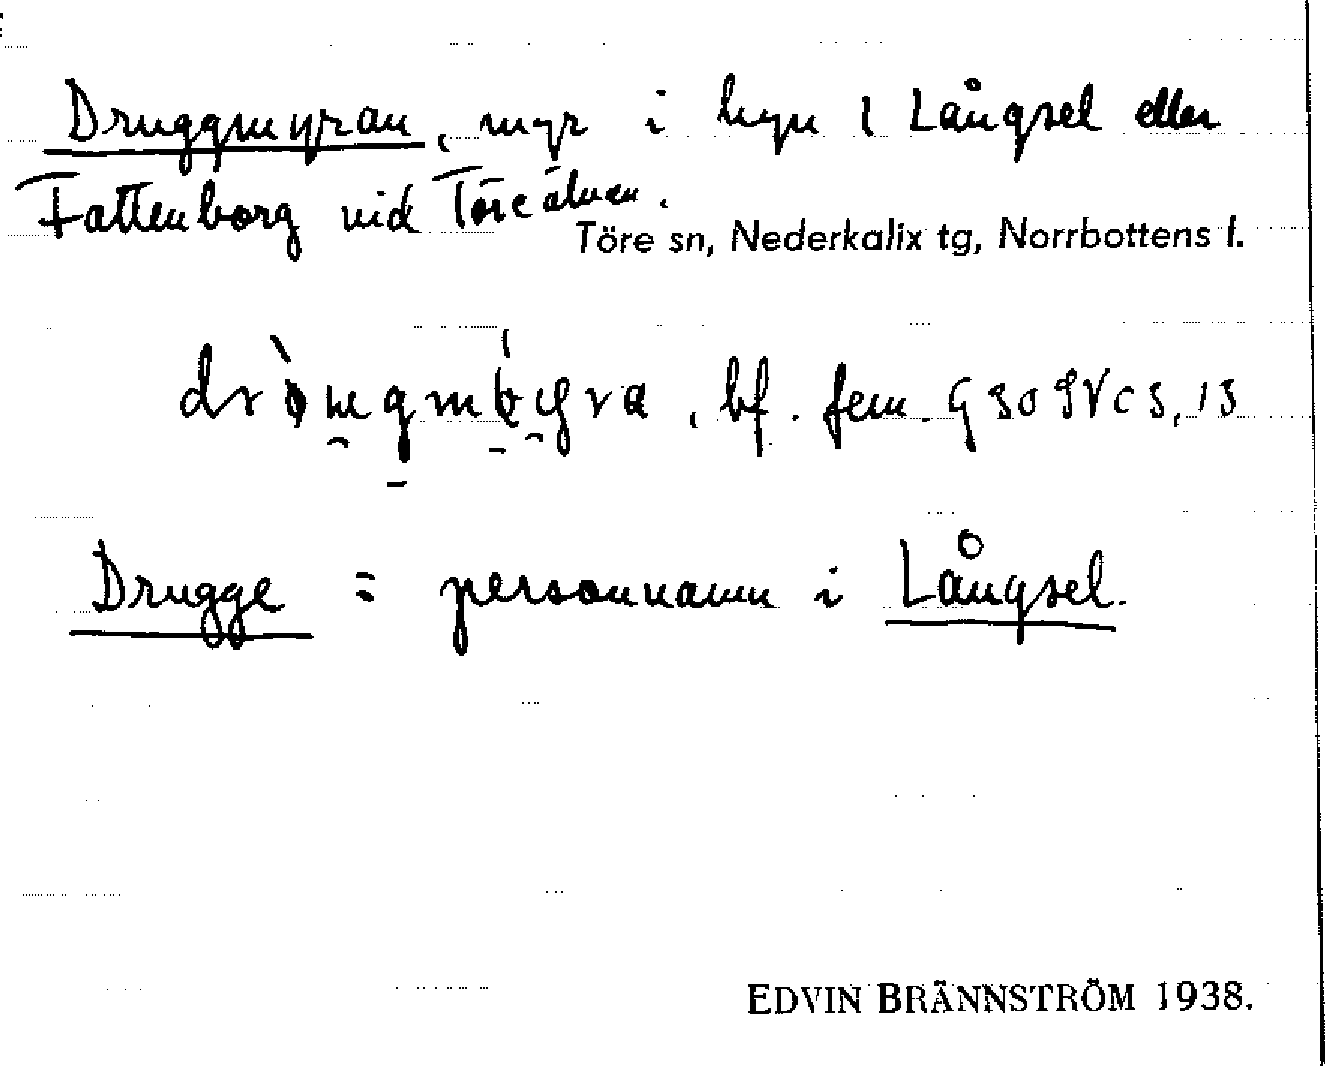 Druggmyran, myr i byn 1 Långsel eller
Fattenborg vid Töreälven.
Töre sn, Nederkalix tg, Norrbottens l.
bf. fem.
Drugge = personnamn i Långsel.
EDVIN BRÄNNSTRÖM 1938.